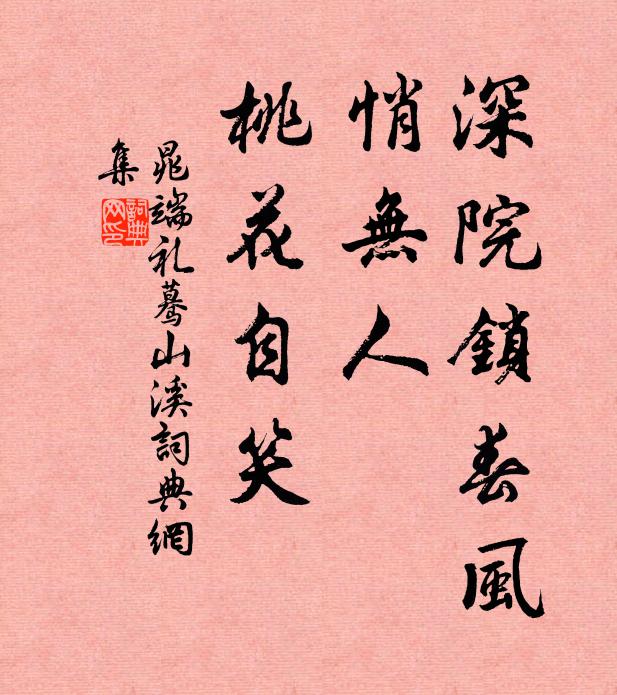 深院鎖春風
悄無人
桃花自笑
晁端礼驀山溪詞典網
集
詞典
网印